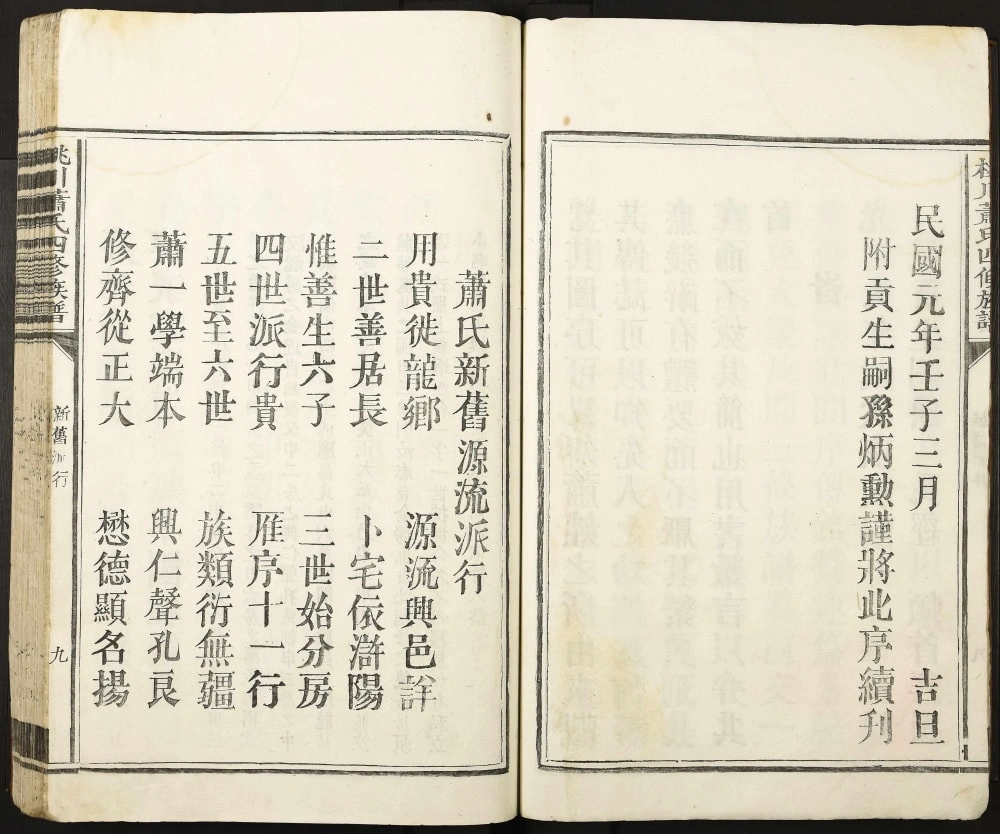 民國元年壬子三月 吉旦
附貢生嗣孫炳勳謹將此序續刊
蕭氏新舊源流派行
用貴徙龍鄉 源流興邑詳
二世善居長 卜宅依滸陽
惟善生六子 三世始分房
四世派行貴 雁序十一行
五世至六世 族類衍無疆
蕭一學端本 興仁聲孔良
修齊從正大 懋德顯名揚
桃川蕭氏四修族譜
新舊派行
九